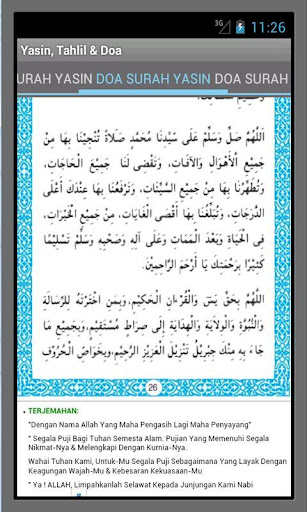 3G 11:26
Yasin, Tahlil & Doa
URAH YASIN DOA SURAH YASIN DOA SURAH
اَللّٰهُمَّ صَلِّ وَسَلِّمْ عَلَى سَيِّدِنَا مُحَمَّدٍ صَلَاةً تُنْجِيْنَا بِهَا مِنْ
جَمِيْعِ الْأَهْوَالِ وَالْآفَاتِ، وَتَقْضِى لَنَا جَمِيْعَ الْحَاجَاتِ،
وَتُطَهِّرُنَا بِهَا مِنْ جَمِيْعِ السَّيِّئَاتِ، وَتَرْفَعُنَا بِهَا عِنْدَكَ أَعْلَى
الدَّرَجَاتِ، وَتُبَلِّغُنَا بِهَا أَقْصَى الْغَايَاتِ مِنْ جَمِيْعِ الْخَيْرَاتِ،
فِى الْحَيَاةِ وَبَعْدَ الْمَمَاتِ وَعَلَى آلِهِ وَصَحْبِهِ وَسَلِّمْ تَسْلِيْمًا
كَثِيْرًا بِرَحْمَتِكَ يَا أَرْحَمَ الرَّاحِمِيْنَ.
اَللّٰهُمَّ بِحَقِّ يٰسٓ وَالْقُرْءَانِ الْحَكِيْمِ، وَبِمَنِ اخْتَرْتَهُ لِلرِّسَالَةِ
وَالنُّبُوَّةِ وَالْوِلَايَةِ وَالْهِدَايَةِ إِلَى صِرَاطٍ مُسْتَقِيْمٍ، وَبِجَمِيْعِ مَا
جَاءَ بِهِ مِنْكَ جِبْرِيْلُ تَنْزِيْلَ الْعَزِيْزِ الرَّحِيْمِ، وَبِخَوَاصِّ الْحُرُوْفِ
26
TERJEMAHAN:
"Dengan Nama Allah Yang Maha Pengasih Lagi Maha Penyayang"
" Segala Puji Bagi Tuhan Semesta Alam. Pujian Yang Memenuhi Segala
Nikmat-Nya & Melengkapi Dengan Kurnia-Nya.
Wahai Tuhan Kami, Untuk-Mu Segala Puji Sebagaimana Yang Layak Dengan
Keagungan Wajah-Mu & Kebesaran Kekuasaan-Mu
" Ya ! ALLAH, Limpahkanlah Selawat Kepada Junjungan Kami Nabi